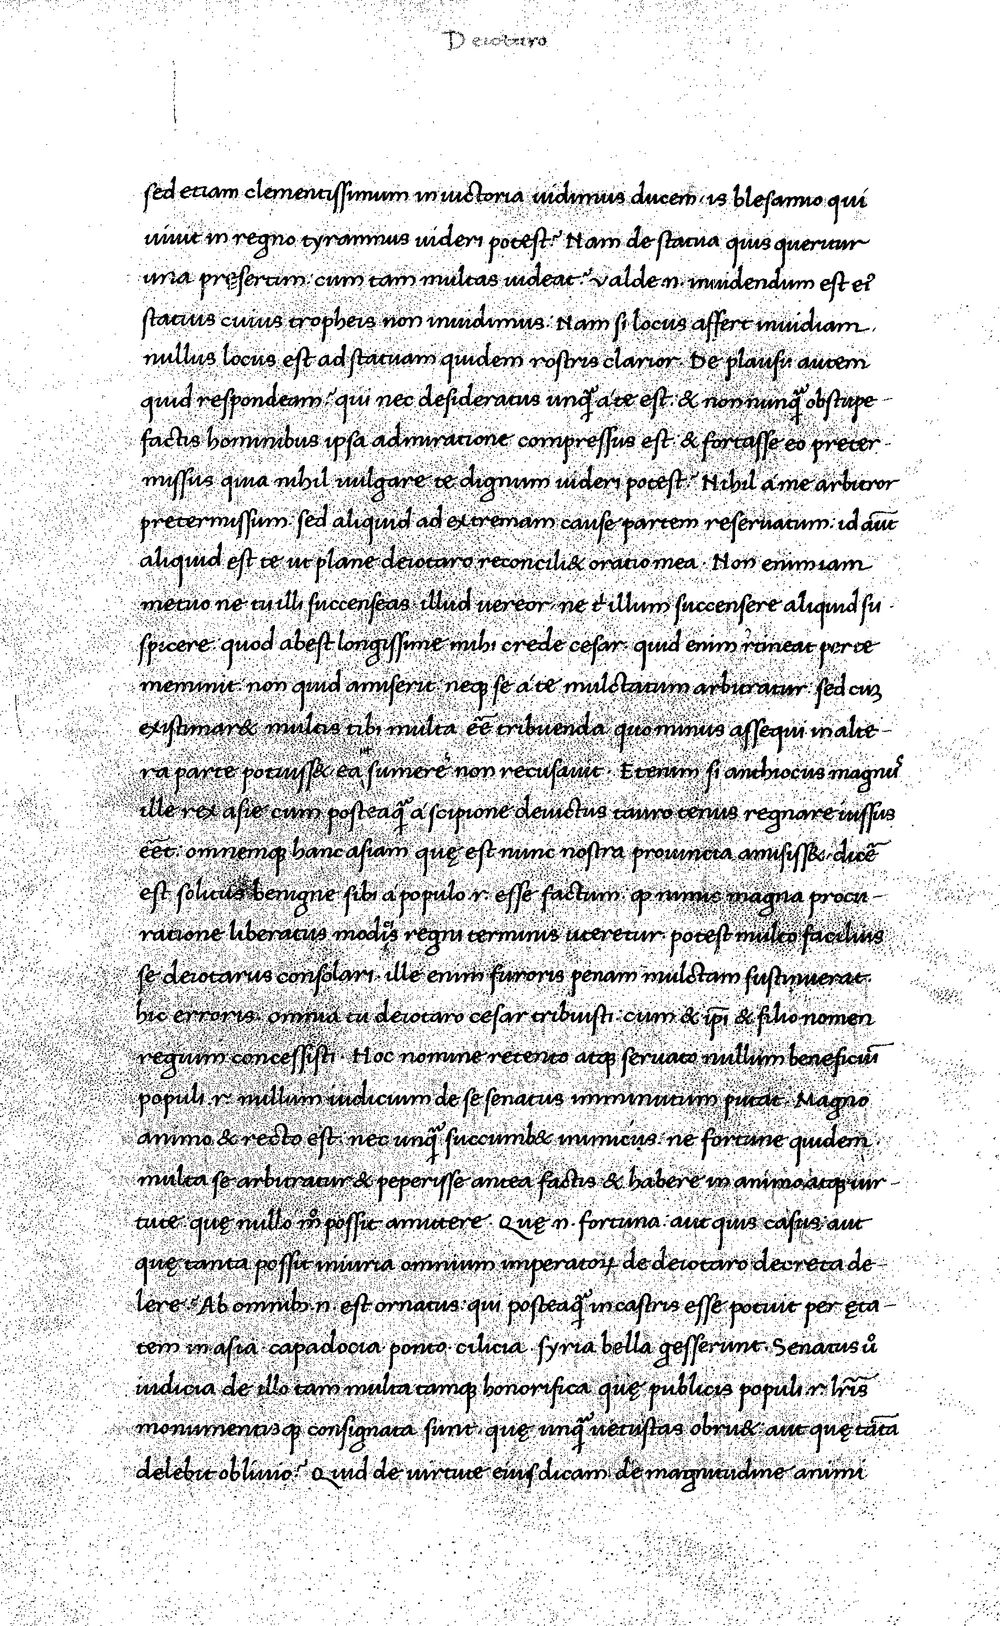 Deiotaro
sed etiam clementissimum in uictoria uidimus ducem. is blesamio qui
uiuit in regno tyrannus uideri potest? Nam de statua quis queritur
una pręsertim cum tam multas uideat? valde .n. inuidendum est eiꝰ
statuis cuius tropheis non inuidimus. Nam si locus affert inuidiam.
nullus locus est ad statuam quidem rostris clarior. De plausu autem
quid respondeam? qui nec desideratus unq̃ a te est. & non nunq̃ obstupe-
factis hominibus ipsa admiratione compressus est. & fortasse eo preter-
missus quia nihil uulgare te dignum uideri potest? Nihil a me arbitror
pretermissum. sed aliquid ad extremam cause partem reseruatum. id aũt
aliquid est te ut plane deiotaro reconcili& oratio mea. Non enim iam
metuo ne tu illi succenseas. illud uereor. ne t̕ illum succensere aliquid su-
spicere. quod abest longissime mihi crede cesar. quid enim rtineat per te
meminit. non quid amiserit. neqꝫ se a te mulctatum arbitratur. sed cuꝫ
existimar& multis tibi multa eẽ tribuenda quominus assequi in alte-
ra parte potuiss& ea sumere non recusauit. Etenim si anthiocus magnuꝰ
ille rex asie cum posteaq̃ a scipione deuictus tauro tenus regnare iussus
eẽt. omnemqꝫ hanc asiam quę est nunc nostra prouincia amisiss&. dicẽ
est solitus benigne sibi a populo .r. esse factum. ꝙ nimis magna procu-
ratione liberatus modijs regni terminis uteretur. potest multo facilius
se deiotarus consolari. ille enim furoris penam mulctam sustinuerat.
hic erroris. omnia tu deiotaro cesar tribuisti. cum & ip̃i & filio nomen
regium concessisti. Hoc nomine retento atqꝫ seruato nullum beneficiũ
populi .r. nullum iudicium de se senatus imminutum putat. Magno
animo & recto est. nec unq̃ succumb& inimicis. ne fortune quidem.
multa se arbitratur & peperisse antea factis & habere in animo atqꝫ uir-
tute quę nullo m̊ possit amittere. Quę .n. fortuna. aut quis casus. aut
quę tanta possit iniuria omnium imperatoꝝ de deiotaro decreta de-
lere? Ab omnibꝫ .n. est ornatus. qui posteaq̃ in castris esse potuit per ęta-
tem in asia. capadocia ponto. cilicia. syria bella gesserunt. Senatus ů
iudicia de illo tam multa tamqꝫ honorifica quę publicis populi .r. lr̃is
monumentisqꝫ consignata sunt. quę unq̃ uetustas obru&. aut quę tãta
delebit obliuio? Quid de uirtute eius dicam de magnitudine animi